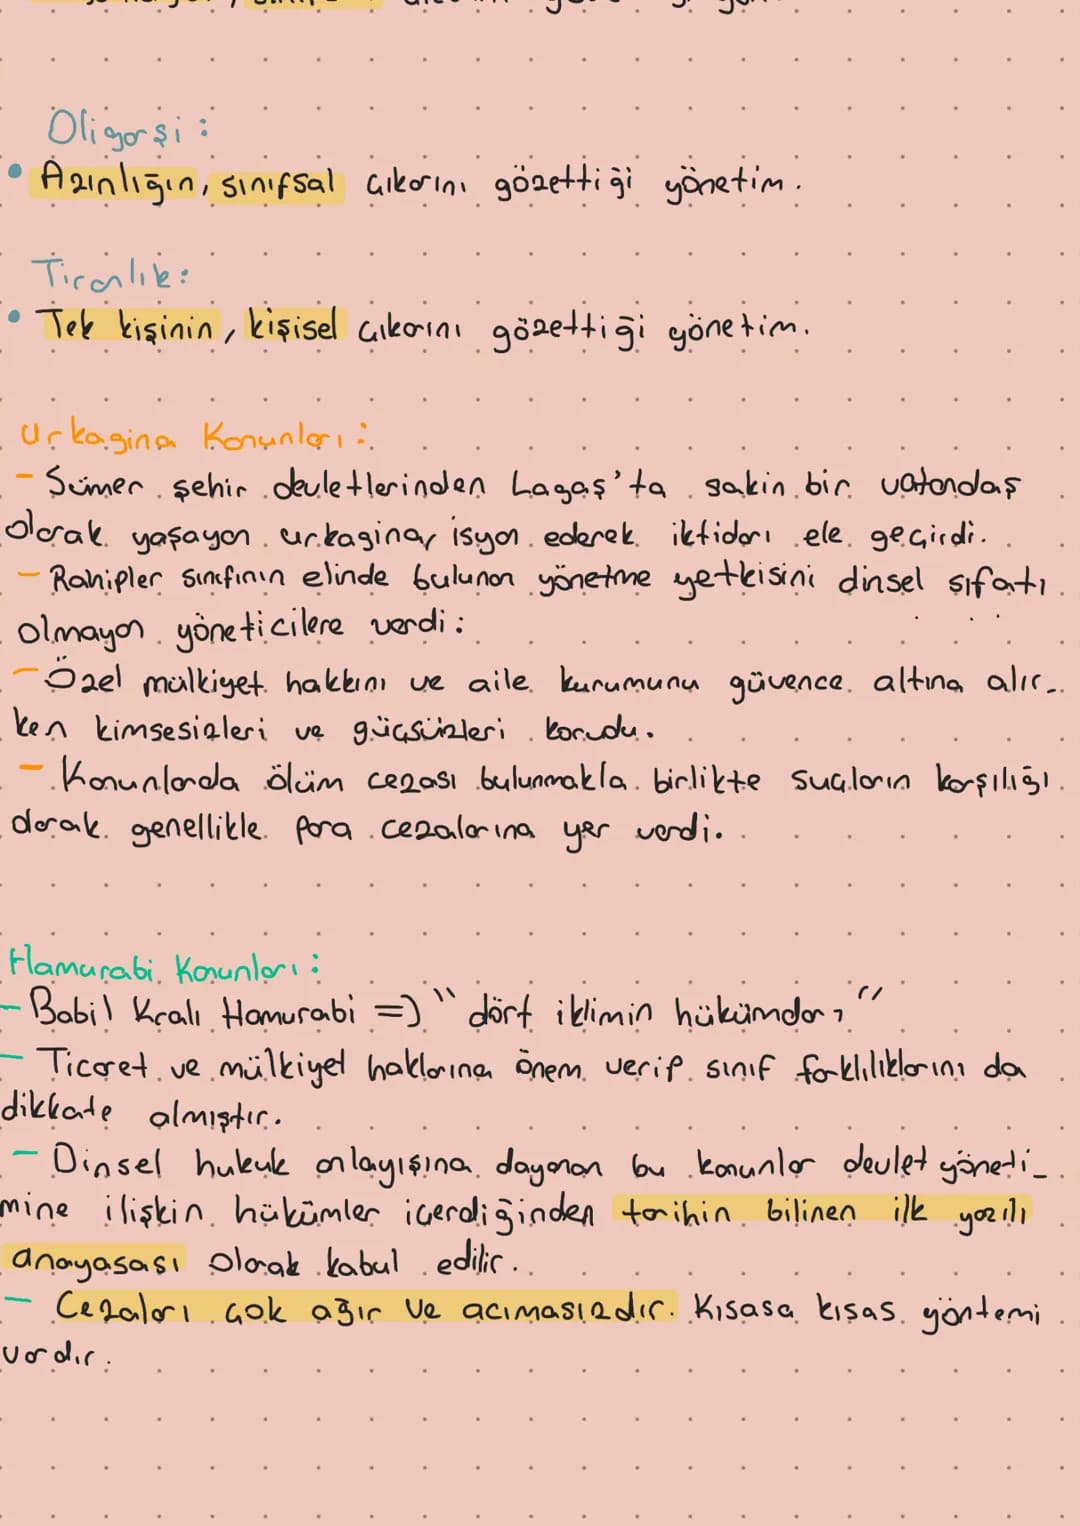 Oligarşi :
• Azınlığın, sınıfsal çıkarını gözettiği yönetim.
Tiranlık:
• Tek kişinin, kişisel çıkarını gözettiği yönetim.
Urkagina Kanunları :
- Sümer şehir devletlerinden Lagaş'ta sakin bir vatandaş
olarak yaşayan urkagina, isyan ederek iktidarı ele geçirdi.
- Rahipler sınıfının elinde bulunan yönetme yetkisini dinsel sıfatı
olmayan yöneticilere verdi :
- Özel mülkiyet hakkını ve aile kurumunu güvence altına alır-
ken kimsesizleri ve güçsüzleri korudu.
- Kanunlarda ölüm cezası bulunmakla birlikte suçların karşılığı
olarak genellikle para cezalarına yer verdi.
Hamurabi Kanunları :
- Babil Kralı Hamurabi => "dört iklimin hükümdarı"
- Ticaret ve mülkiyet haklarına önem verip sınıf farklılıklarını da
dikkate almıştır.
- Dinsel hukuk anlayışına dayanan bu kanunlar devlet yöneti-
mine ilişkin hükümler içerdiğinden tarihin bilinen ilk yazılı
anayasası olarak kabul edilir.
- Cezaları çok ağır ve acımasızdır. Kısasa kısas yöntemi
vardır.